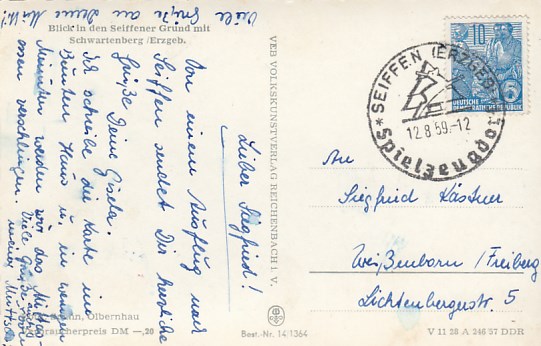 Viele Grüße an Deine Mutti!
Blick in den Seiffener Grund mit
Schwartenberg /Erzgeb.
Lieber Siegfried!
Von einem Ausflug nach
Seiffen sendet Dir herzliche
Grüße Deine Gisela.
Ich schreibe die Karte im
Bunten Haus u. in wenigen
Minuten werden wir das Mittag-
essen verschlingen. Viele Grüße
auch von
meiner Mutti
Olbernhau
Verbraucherpreis DM —,20
Best.-Nr. 14/1364
VEB VOLKSKUNSTVERLAG REICHENBACH I. V.
10
DEUTSCHE
DEMOKRATISCHE REPUBLIK
5
SEIFFEN (ERZGEB)
12.8.59.-12
*Spielzeugdorf
An
Siegfried Kästner
Weißenborn/Freiberg
Lichtenbergerstr. 5
V 11 28 A 246 57 DDR